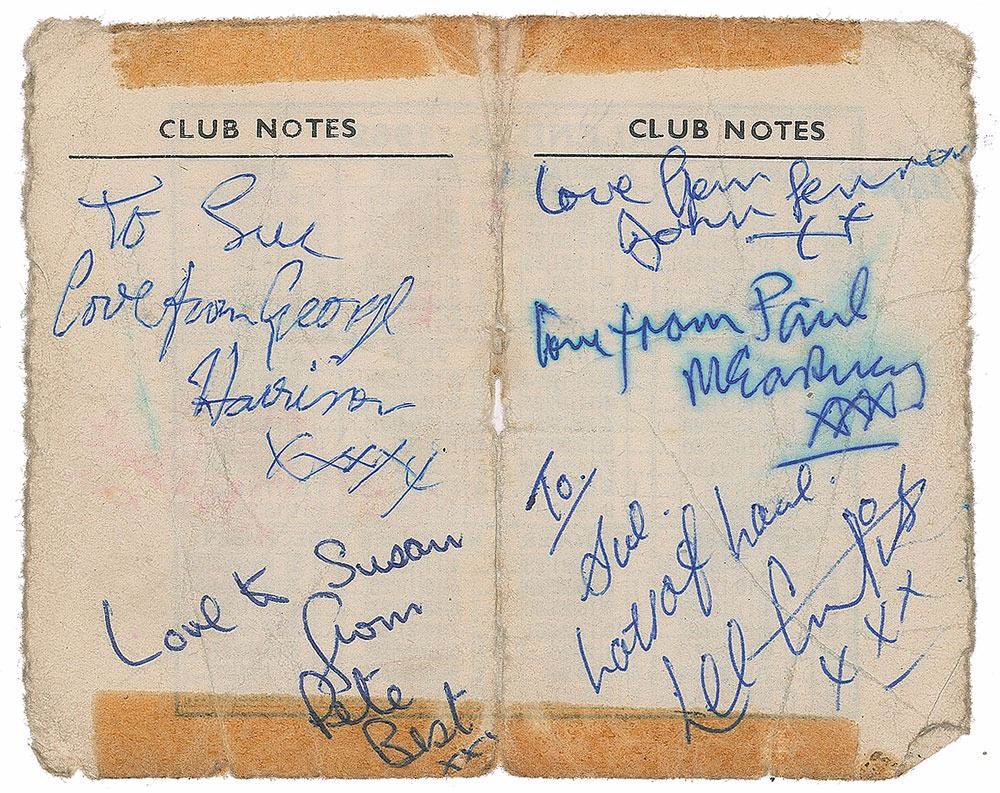 CLUB NOTES
To Sue
Love from George
Harrison
xxxxx
Love to Susan
from
Pete
Best
xxx
CLUB NOTES
Love from
John Lennon
xx
love from Paul
McCartney
xxx
To.
Sue.
Lots of
xxx